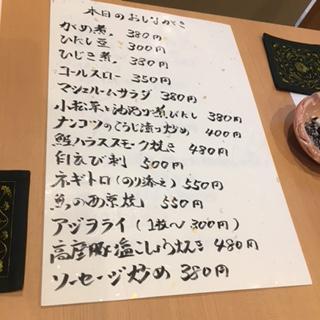 本日のおしながき
がめ煮。 380円
ひたし豆 300円
ひじき煮。 380円
コールスロー 350円
マシュルームサラダ 380円
小松菜と油揚の煮びたし 380円
ナンコツのくうじ漬っ炒め 400円
鮭ハラススモーク焼き 480円
白えび刺 500円
ネギトロ(のり添え) 550円
魚の西京焼 550円
アジフライ(1枚〜300円)
豚塩こしょう焼き 480円
ソーセージ炒め 380円